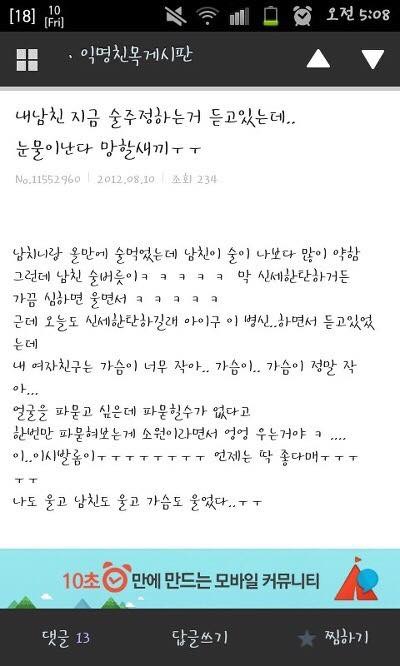 [18] 10 [Fri] 오전 5:08
. 익명친목게시판
내남친 지금 술주정하는거 듣고있는데..
눈물이난다 망할새끼ㅜㅜ
No.11552960 | 2012.08.10 | 조회 234
남치니랑 올만에 술먹었는데 남친이 술이 나보다 많이 약함
그런데 남친 술버릇이ㅋ ㅋ ㅋ ㅋ ㅋ 막 신세한탄하거든
가끔 심하면 울면서 ㅋ ㅋ ㅋ ㅋ ㅋ
근데 오늘도 신세한탄하길래 아이구 이 병신..하면서 듣고있었
는데
내 여자친구는 가슴이 너무 작아.. 가슴이.. 가슴이 정말 작
아...
얼굴을 파묻고 싶은데 파묻힐수가 없다고
한번만 파묻혀보는게 소원이라면서 엉엉 우는거야 ㅋ ....
이..이시발롬이ㅜㅜㅜㅜㅜㅜㅜㅜ 언제는 딱 좋다매ㅜㅜㅜ
ㅜㅜ
나도 울고 남친도 울고 가슴도 울었다..ㅜㅜ
10초 만에 만드는 모바일 커뮤니티
댓글 13 답글쓰기 찜하기